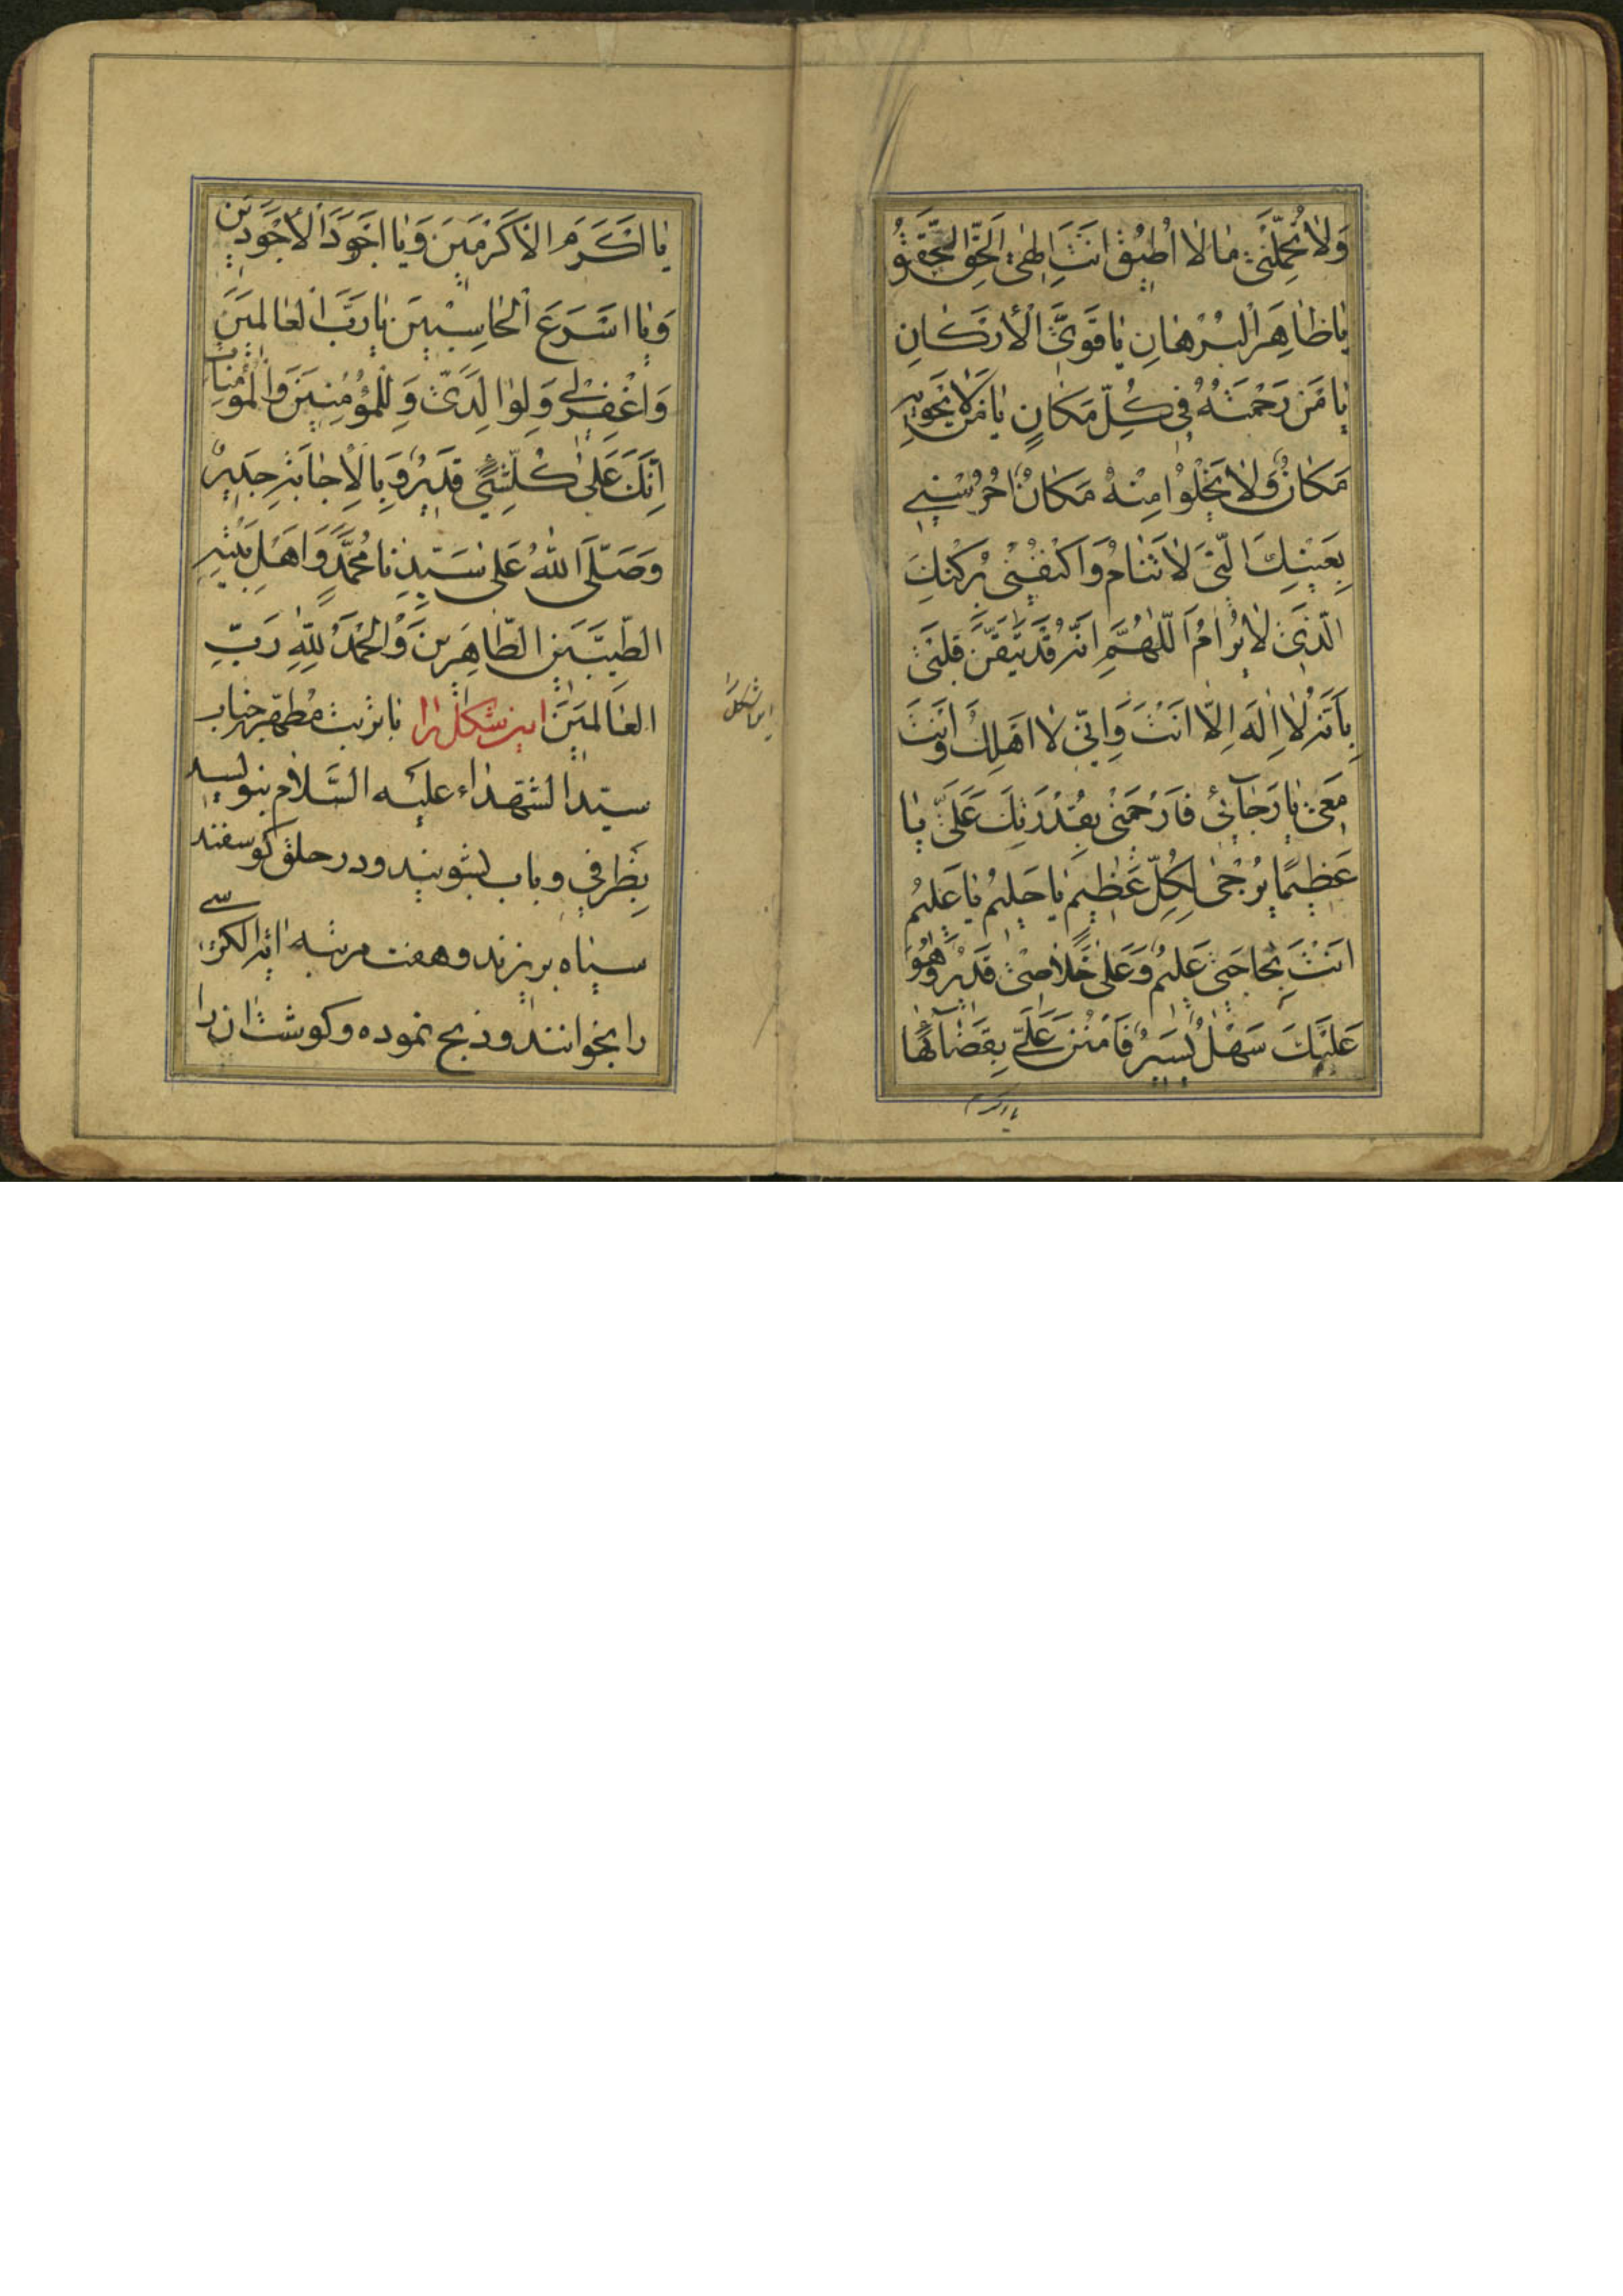 وَلَا تُحَمِّلْنِی مَا لَا اُطِیقُ اَنْتَ اِلٰهِیَ الْحَقُّ الْحَقِیقُ
یَا ظَاهِرَ الْبُرْهَانِ یَا قَوِیَّ الْأَرْکَانِ
یَا مَنْ رَحْمَتُهُ فِی کُلِّ مَکَانٍ یَا مَنْ لَا یَحْوِیهِ
مَکَانٌ وَلَا یَخْلُوا مِنْهُ مَکَانٌ اُحْرُسْنِی
بِعَیْنِکَ الَّتِی لَا تَنَامُ وَاکْنُفْنِی بِرُکْنِکَ
الَّذِی لَا یُرَامُ اَللّٰهُمَّ اِنَّهُ قَدْ تَیَقَّنَ قَلْبِی
بِاَنَّهُ لَا اِلٰهَ اِلَّا اَنْتَ وَاِنِّی لَا اَهْلِکُ وَاَنْتَ
مَعِی یَا رَجَآئِی فَارْحَمْنِی بِقُدْرَتِکَ عَلَیَّ یَا
عَظِیمًا یُرْجٰی لِکُلِّ عَظِیمٍ یَا حَلِیمُ یَا عَلِیمُ
اَنْتَ بِحَاجَتِی عَلِیمٌ وَعَلٰی خَلَاصِی قَدِیرٌ وَهُوَ
عَلَیْکَ سَهْلٌ یَسِیرٌ فَامْنُنْ عَلَیَّ بِقَضَآئِهَا
یا اکرم
یَا اَکْرَمَ الْاَکْرَمِینَ وَیَا اَجْوَدَ الْأَجْوَدِینَ
وَیَا اَسْرَعَ الْحَاسِبِینَ یَا رَبَّ الْعَالَمِینَ
وَاغْفِرْ لِی وَلِوَالِدَیَّ وَلِلْمُؤْمِنِینَ وَالْمُؤْمِنَاتِ
اِنَّکَ عَلٰی کُلِّ شَیْءٍ قَدِیرٌ وَبِالْاِجَابَةِ جَدِیرٌ
وَصَلَّی اللّٰهُ عَلٰی سَیِّدِنَا مُحَمَّدٍ وَاَهْلِ بَیْتِهِ
الطَّیِّبِینَ الطَّاهِرِینَ وَالْحَمْدُ لِلّٰهِ رَبِّ
الْعَالَمِینَ این شکل را با تربت مطهر جناب
سیّد الشهداء علیه السّلام بنویسید
بظرفی و باب بشویید و در حلق کوسفند
سیاه بریزند و هفت مرتبه ایة الکرسی
را بخوانند و ذبح نموده و کوشت ان را
این شکل را